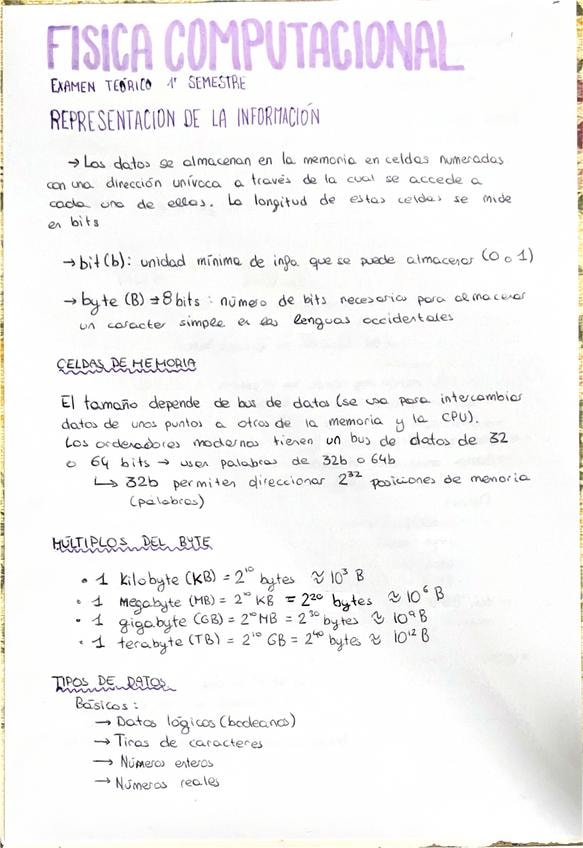 FISICA COMPUTACIONAL
EXAMEN TEÓRICO 1º SEMESTRE
REPRESENTACION DE LA INFORMACIÓN
→ Los datos se almacenan en la memoria en celdas numeradas
con una dirección unívoca a través de la cual se accede a
cada una de ellas. La longitud de estas celdas se mide
en bits
→ bit (b): unidad mínima de info que se puede almacenar (0 o 1)
→ byte (B) → 8 bits : número de bits necesario para almacenar
un caracter simple en las lenguas occidentales
CELDAS DE MEMORIA
El tamaño depende de bus de datos (se usa para intercambiar
datos de unos puntos a otros de la memoria y la CPU).
Los ordenadores modernos tienen un bus de datos de 32
o 64 bits → usan palabras de 32b o 64b
↳ 32b permiten direccionar 2³² posiciones de memoria
(palabras)
MÚLTIPLOS DEL BYTE
• 1 Kilobyte (KB) = 2¹⁰ bytes ≈ 10³ B
• 1 Megabyte (MB) = 2¹⁰ KB = 2²⁰ bytes ≈ 10⁶ B
• 1 gigabyte (GB) = 2¹⁰ MB = 2³⁰ bytes ≈ 10⁹ B
• 1 terabyte (TB) = 2¹⁰ GB = 2⁴⁰ bytes ≈ 10¹² B
TIPOS DE DATOS
Básicos :
→ Datos lógicos (booleanos)
→ Tiras de caracteres
→ Números enteros
→ Números reales